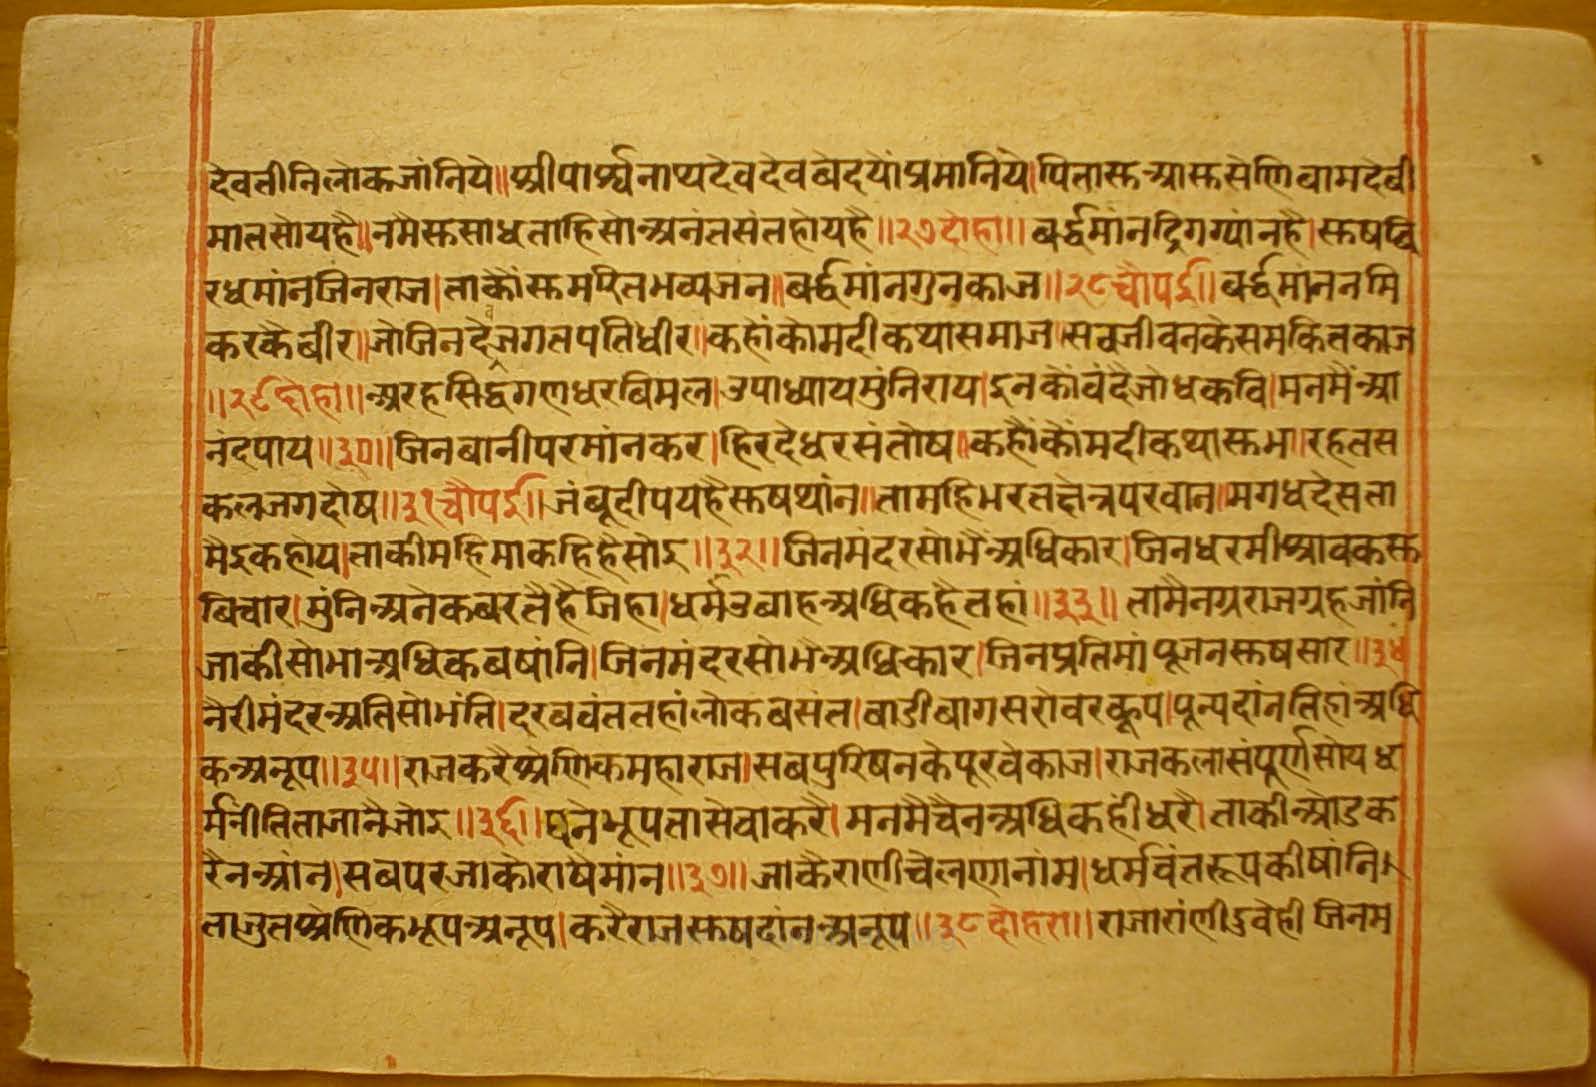 देवतीनिलोकजांनिये॥श्रीपार्श्वनाथदेवदेवबेदयोंप्रमानिये।पितासुआससेणिवामदेबी
मातसोयहै॥नमैसुसाधताहिसोअनंतसंतहोयहै॥२७दोहा॥बर्द्धमांनद्रिगग्यांनहै।सुषबि
रधमांनजिनराज।ताकौंसुमरितभव्यजन॥बर्द्धमांनगुनकाज॥२८चौपई॥बर्द्धमाननमि
करकैबीर॥जोजिनदेवजगतपतिधीर॥कहोंकोमदीकथासमाज॥सबजीवनकेसमकितकाज
॥२९दोहा॥अरहसिद्धगणधरबिमल।उपाध्यायमुंनिराय।इनकौंवंदैजोधकवि।मनमैंआ
नंदपाय॥३०॥जिनबानीपरमांनकर।हिरदेधरसंतोष॥कहौंकौंमदीकथासुभ॥रहतस
कलजगदोष॥३१चौपई॥जंबूदीपयहैसुषथांन॥तामहिभरतक्षेत्रपरवान॥मगधदेसता
मैइकहोय।ताकीमहिमाकहिहैसोइ॥३२॥जिनमंदरसोभैअधिकार।जिनधरमीश्रावकसु
बिचार।मुंनिअनेकबरतैहैजिहा।धर्मउबाहअधिकहैतहां॥३३॥तामैनग्रराजग्रहजांनि
जाकीसोभाअधिकबषांनि।जिनमंदरसोभैअधिकार।जिनप्रतिमांपूजनसुषसार॥३४
नैरीमंदरअतिसोभंति।दरबवंततहांलोकबसंत।वाडीबागसरोवरकूप।पून्यदांनतिहांअधि
कअनूप॥३५॥राजकरैश्रेणिकमहाराज।सबपुरिषनकेपूरवेकाज।राजकलासंपूर्णसोयध
र्मनीतिताजानैजोइ॥३६॥घनेभूपतासेवाकरै।मनमैचैनअधिकहींधरै।ताकीओडक
रैनआंन।सबपरजाकोराषैमांन॥३७॥जाकैराणीचेलणानांम।धर्मवंतरूपकीषांनि।
ताजुतश्रेणिकभूपअनूप।करैराजसुषदांनअनूप॥३८दोहरा॥राजारांणीउवेही जिनम